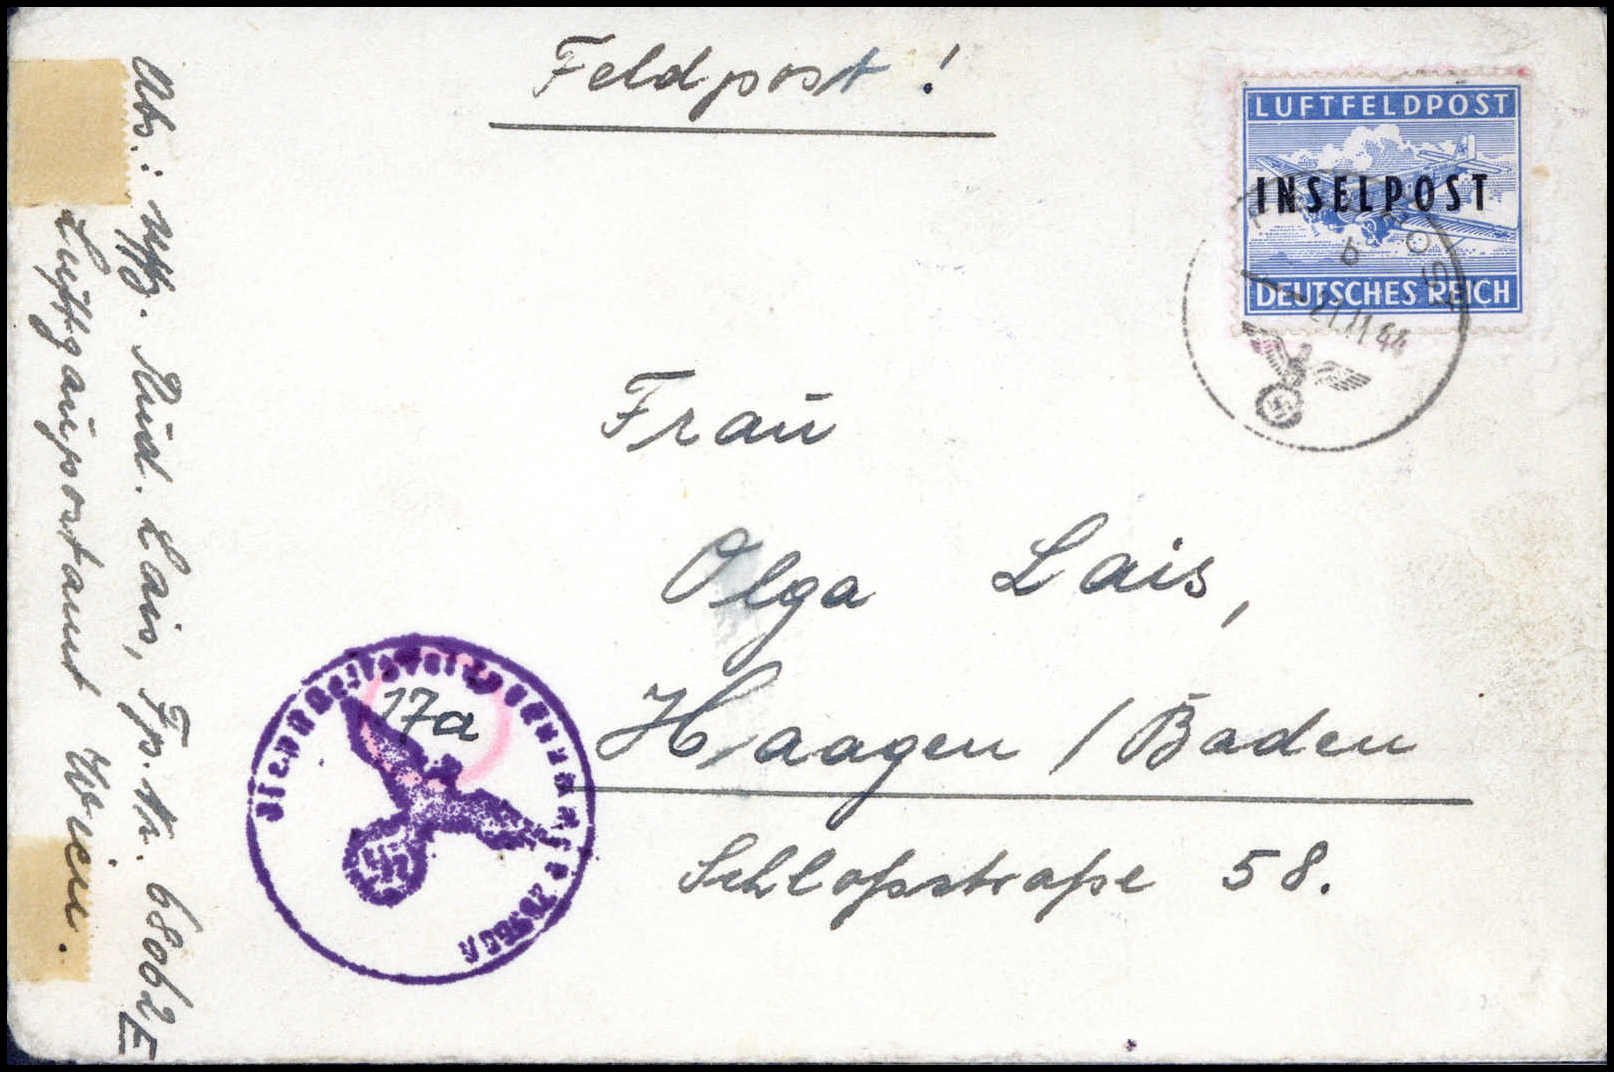 Feldpost!
LUFTFELDPOST
INSELPOST
DEUTSCHES REICH
b
21.11.44
Frau
Olga Lais,
17a
Haagen / Baden
Schloßstraße 58.
Abs.: Uffz. Rud. Lais, Fp. Nr. 68062 E
Luftgaupostamt Wien.